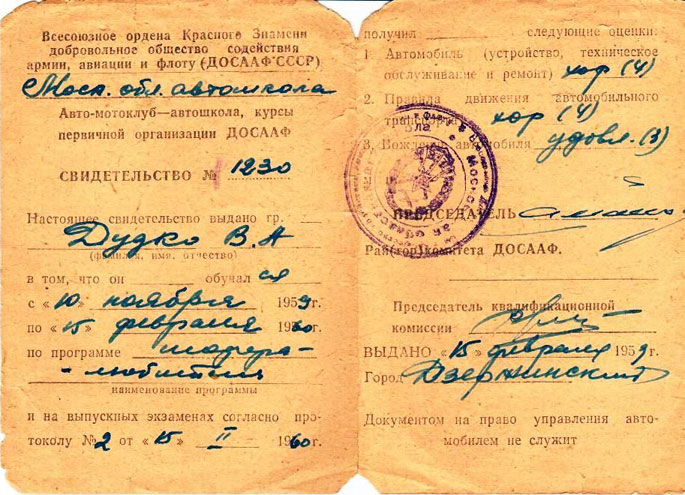 Всесоюзное ордена Красного Знамени
добровольное общество содействия
армии, авиации и флоту (ДОСААФ СССР)
Моск. обл. автошкола
Авто-мотоклуб—автошкола, курсы
первичной организации ДОСААФ
СВИДЕТЕЛЬСТВО № 1230
Настоящее свидетельство выдано гр.
Дудко В. А
(фамилия, имя, отчество)
в том, что он обучался
с «10» ноября 1959г.
по «15» февраля 1960г.
по программе шофера-
-любителя
наименование программы
и на выпускных экзаменах согласно про-
токолу № 2 от «15» II – 1960г.
получил следующие оценки:
1 Автомобиль (устройство, техническое
обслуживание и ремонт) хор (4)
2. Правила движения автомобильного
транспорта хор (4)
3. Вождение автомобиля удовл. (3)
ПРЕДСЕДАТЕЛЬ
Рай(гор)комитета ДОСААФ.
Председатель квалификационной
комиссии
ВЫДАНО «15» февраля 1959г
Город Дзержинский
Документом на право управления авто-
мобилем не служит